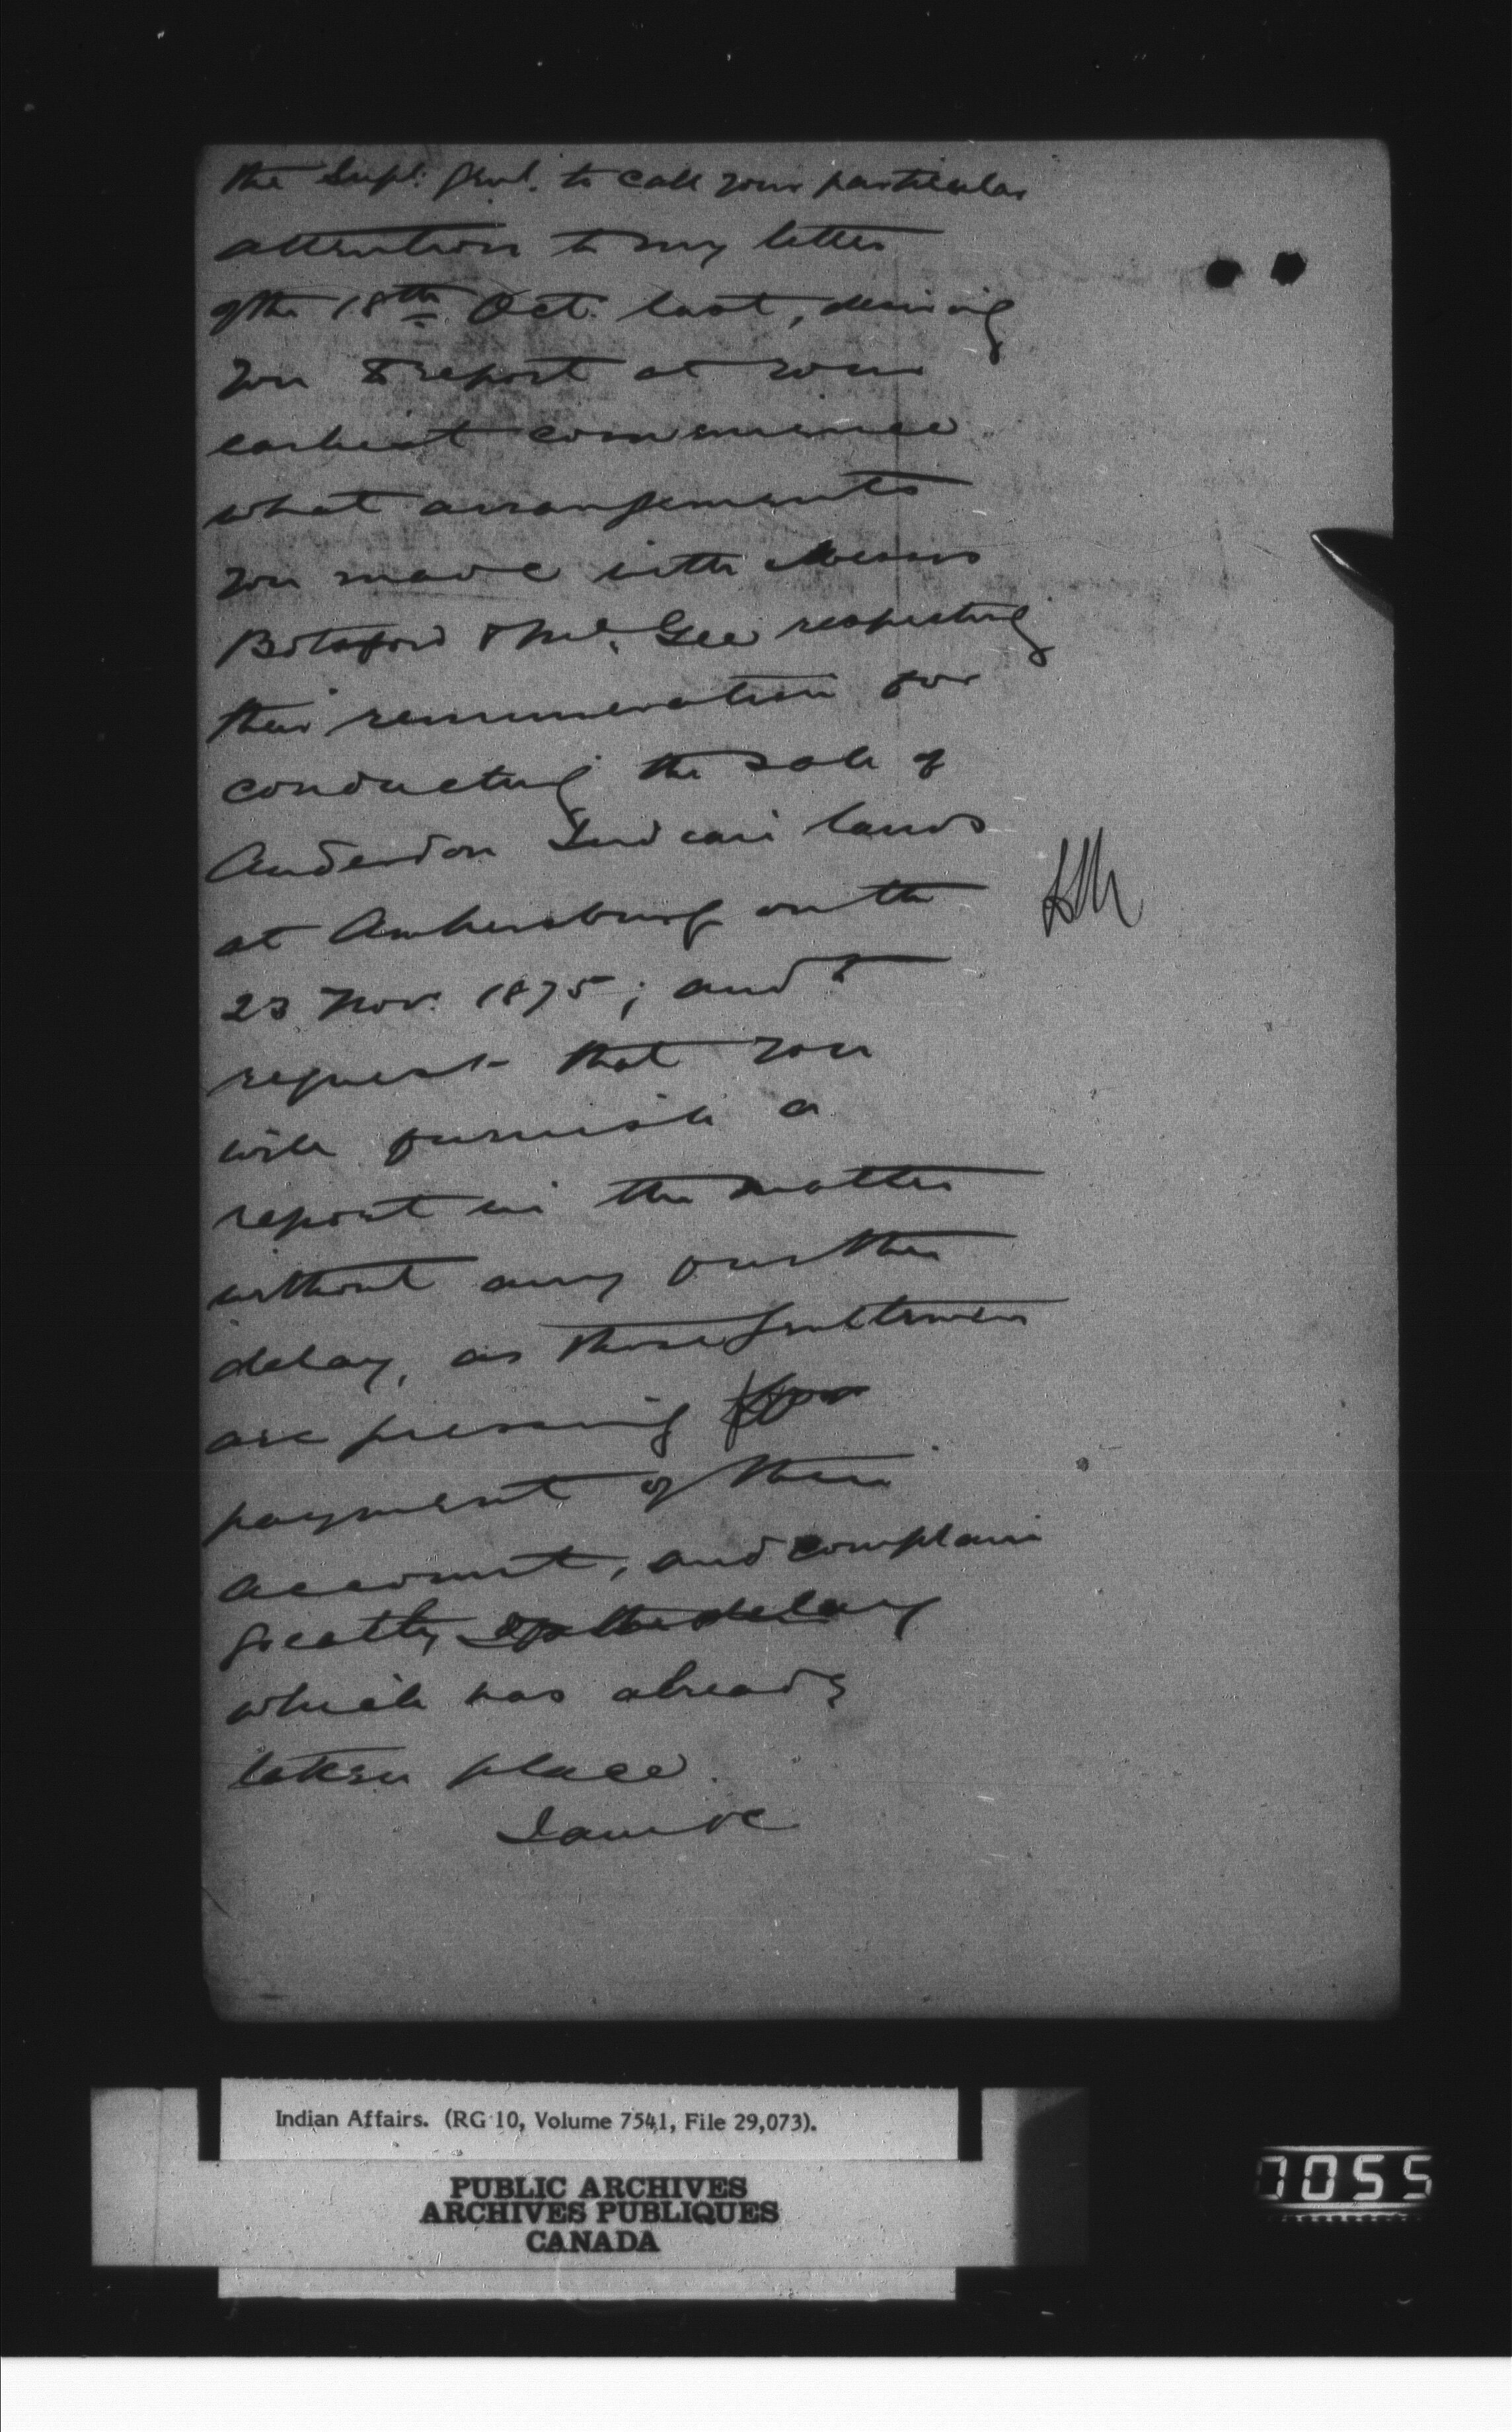 the Supt. Genl. to call your particular
attention to my letter
of the 18th Oct. last, desiring
you to report at your
earliest convenience
what arrangements
you made with Messrs
Botsford & Mc. Gee respecting
their remuneration for
conducting the sale of
Anderdon Indian lands
at Amhersburg on the
23 Nov. 1875; and to
request that you
will furnish a
report in the matter
without any further
delay, as those gentlemen
are pressing for
payment of their
account, and complain
greatly of the delay
which has already
taken place.
I am &c
Indian Affairs. (RG 10, Volume 7541, File 29,073).
PUBLIC ARCHIVES
ARCHIVES PUBLIQUES
CANADA
0055